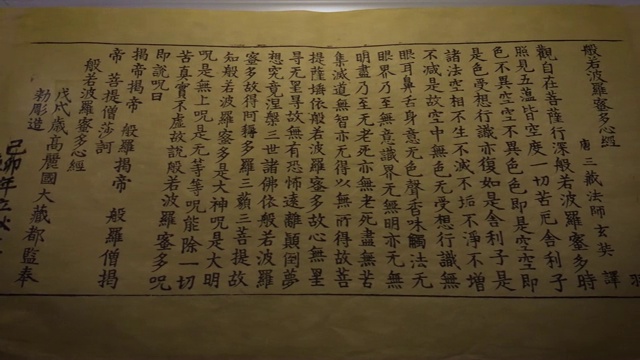 般若波羅蜜多心經
唐三藏法師玄奘 譯
觀自在菩薩行深般若波羅蜜多時
照見五蘊皆空度一切苦厄舍利子
色不異空空不異色色即是空空即
是色受想行識亦復如是舍利子是
諸法空相不生不滅不垢不淨不增
不减是故空中無色无受想行識無
眼耳鼻舌身意无色聲香味觸法无
眼界乃至無意識界无無明亦无無
明盡乃至无老死亦無老死盡無苦
集滅道無智亦无得以無所得故菩
提薩埵依般若波羅蜜多故心無罣
㝵无罣㝵故無有恐怖遠離顛倒夢
想究竟涅槃三世諸佛依般若波羅
蜜多故得阿耨多羅三藐三菩提故
知般若波羅蜜多是大神呪是大明
呪是無上呪是无等等呪能除一切
苦真實不虛故說般若波羅蜜多呪
即說呪曰
揭帝揭帝 般羅揭帝 般羅僧揭
帝 菩提僧莎訶
般若波羅蜜多心經
戊戌歲高麗國大藏都監奉
勅彫造
己卯年